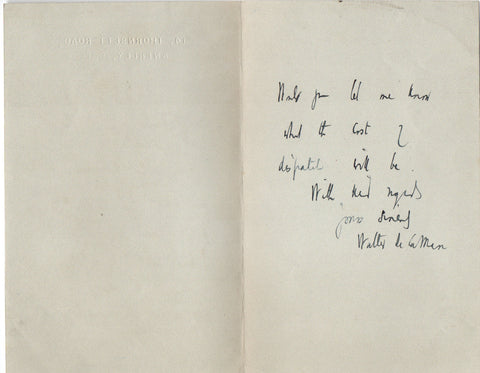 14, THORNSETT ROAD,
ANERLEY, S.E.
Would you let me know
what the cost of
despatch will be.
With kind regards
yours sincerely
Walter de la Mare